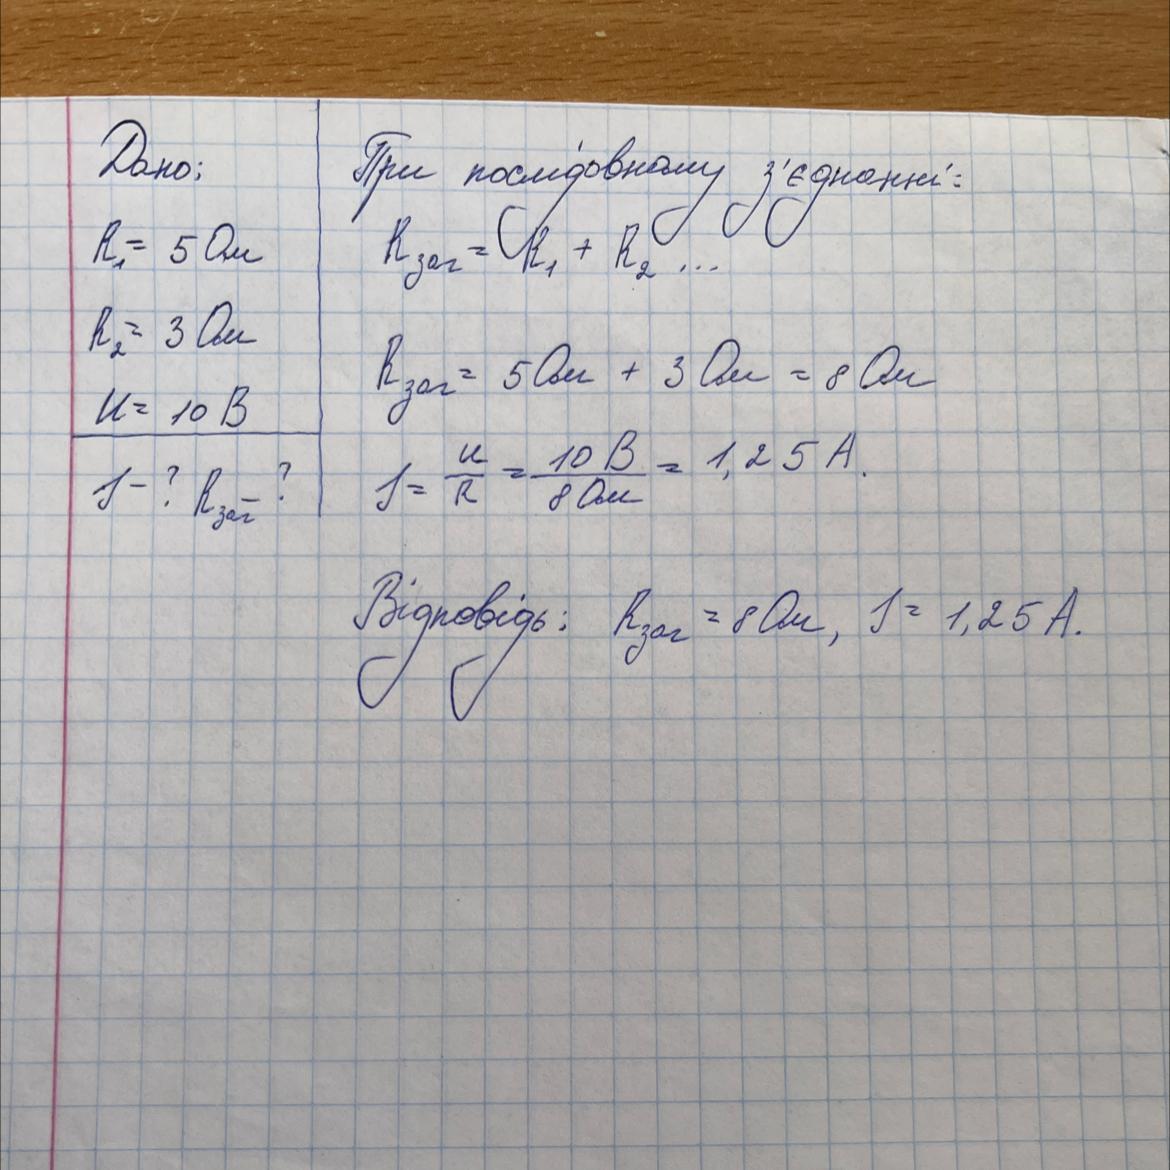 Дано:
R₁= 5 Ом
R₂= 3 Ом
U= 10 В
I-? Rзаг-?
При послідовному з'єднанні:
Rзаг= R₁ + R₂ ...
Rзаг= 5 Ом + 3 Ом = 8 Ом
I= U/R = 10 В/8 Ом = 1,25 А.
Відповідь: Rзаг = 8 Ом, I= 1,25 А.